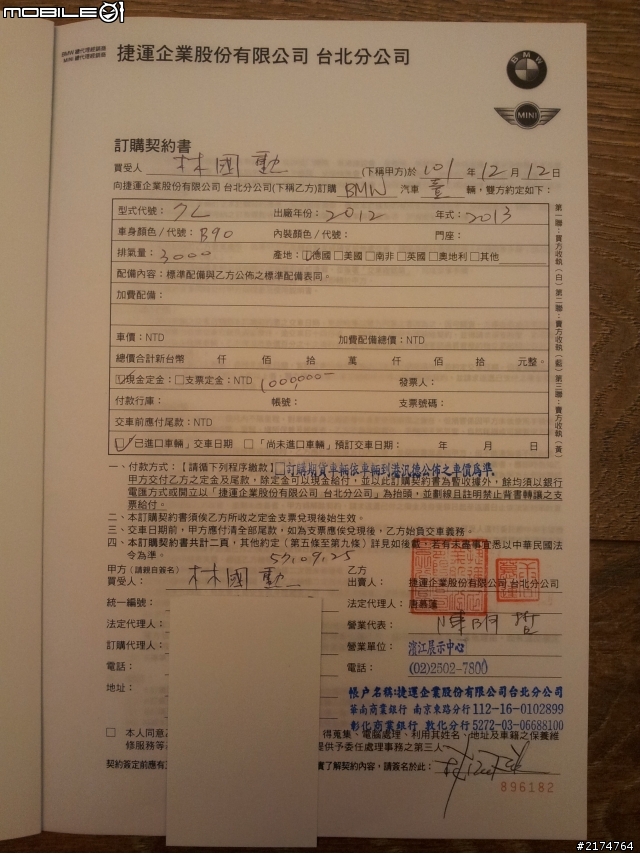 mobile01
BMW 總代理經銷商
MINI 總代理經銷商
捷運企業股份有限公司 台北分公司
BMW
MINI
訂購契約書
買受人 林國勳 (下稱甲方)於 101 年 12 月 12 日
向捷運企業股份有限公司 台北分公司(下稱乙方)訂購 BMW 汽車 壹 輛，雙方約定如下：
型式代號：7L 出廠年份：2012 年式：2013
車身顏色 / 代號：B90 內裝顏色 / 代號： 門座：
排氣量：3000 產地：☑德國 □美國 □南非 □英國 □奧地利 □其他
配備內容：標準配備與乙方公佈之標準配備表同。
加費配備：
車價：NTD 加費配備總價：NTD
總價合計新台幣 仟 佰 拾 萬 仟 佰 拾 元整。
☑現金定金：□支票定金：NTD 1000,000- 發票人：
付款行庫： 帳號： 支票號碼：
交車前應付尾款：NTD
☑「已進口車輛」交車日期 □「尚未進口車輛」預訂交車日期： 年 月 日
第一聯：賣方收執(白) 第二聯：賣方收執(藍) 第三聯：賣方收執(黃)
一、付款方式：【請循下列程序繳款】□訂購期貨車輛依車輛到港汎德公佈之車價為準.
甲方交付乙方之定金及尾款，除定金可以現金給付，並以此訂購契約書為暫收據外，餘均須以銀行
電匯方式或開立以「捷運企業股份有限公司 台北分公司」為抬頭，並劃線且註明禁止背書轉讓之支
票給付。
二、本訂購契約書須俟乙方所收之定金支票兌現後始生效。
三、交車日期前，甲方應付清全部尾款，如為支票應俟兌現後，乙方始負交車義務。
四、本訂購契約書共計二頁，其他約定（第五條至第九條）詳見如後載，若有未盡事宜悉以中華民國法
令為準。 57.09.25
甲方（請親自簽名） 乙方
買受人： 林國勳 出賣人： 捷運企業股份有限公司 台北分公司
統一編號： 法定代理人：唐慕蓮
法定代理人： 營業代表： 陳明哲
訂購代理人： 營業單位： 濱江展示中心
電話： 電話： (02)2502-7800
地址： 帳户名稱:捷運企業股份有限公司台北分公司
華南商業銀行 南京東路分行 112-16-0102899
彰化商業銀行 敦化分行 5272-03-06688100
□ 本人同意 得蒐集、電腦處理、利用其姓名、地址及車籍之保養維
修服務等 提供予委任處理事務之第三人
契約簽定前應有 實了解契約內容，請簽名於此：
896182
#2174764